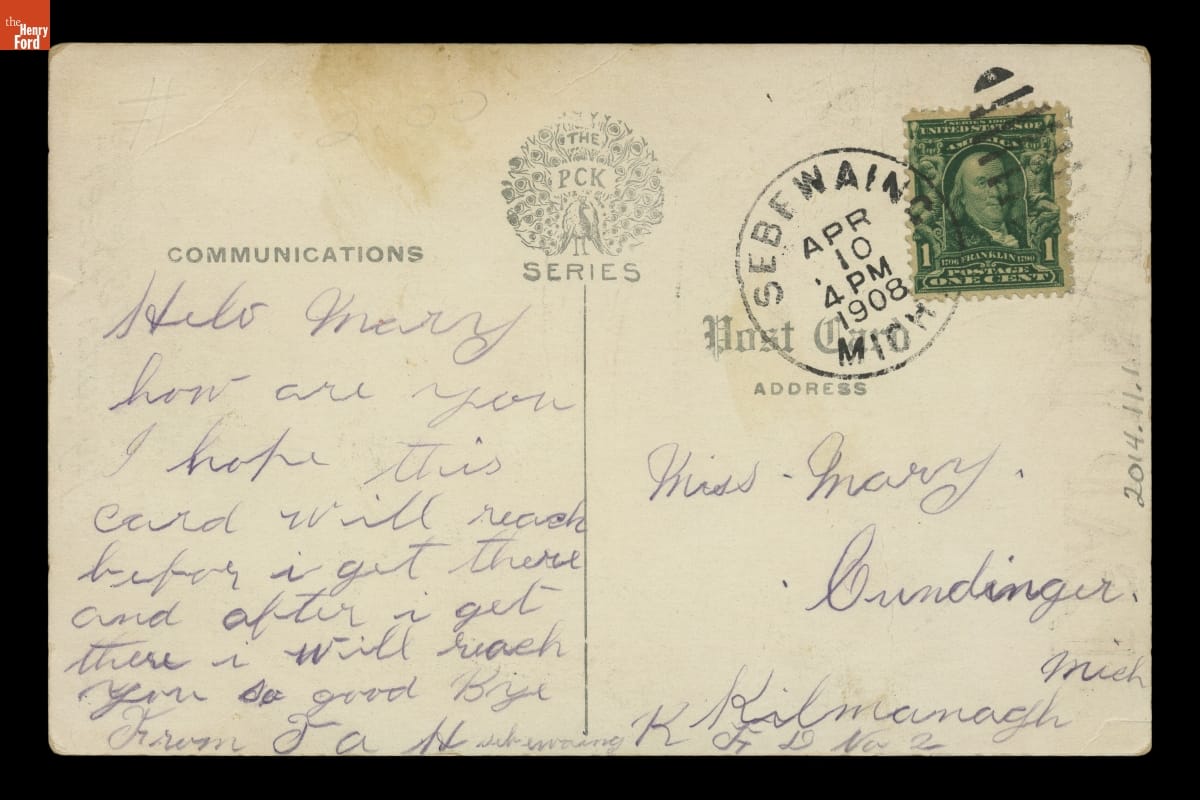 the
Henry
Ford
2.00
THE
PCK
SERIES
COMMUNICATIONS
Helo Mary
how are you
I hope this
card will reach
befor i get there
and after i get
there i will reach
you so good Bye
From J a H sebewaing
SEBEWAING
APR
10
4 PM
1908
MICH
SERIES 1902
UNITED STATES OF
AMERICA
1 1
1706 FRANKLIN 1790
POSTAGE
ONE CENT
Post Card
ADDRESS
Miss Mary
Cundinger.
Mich
Kilmanagh
R F D No 2
2014.11.1